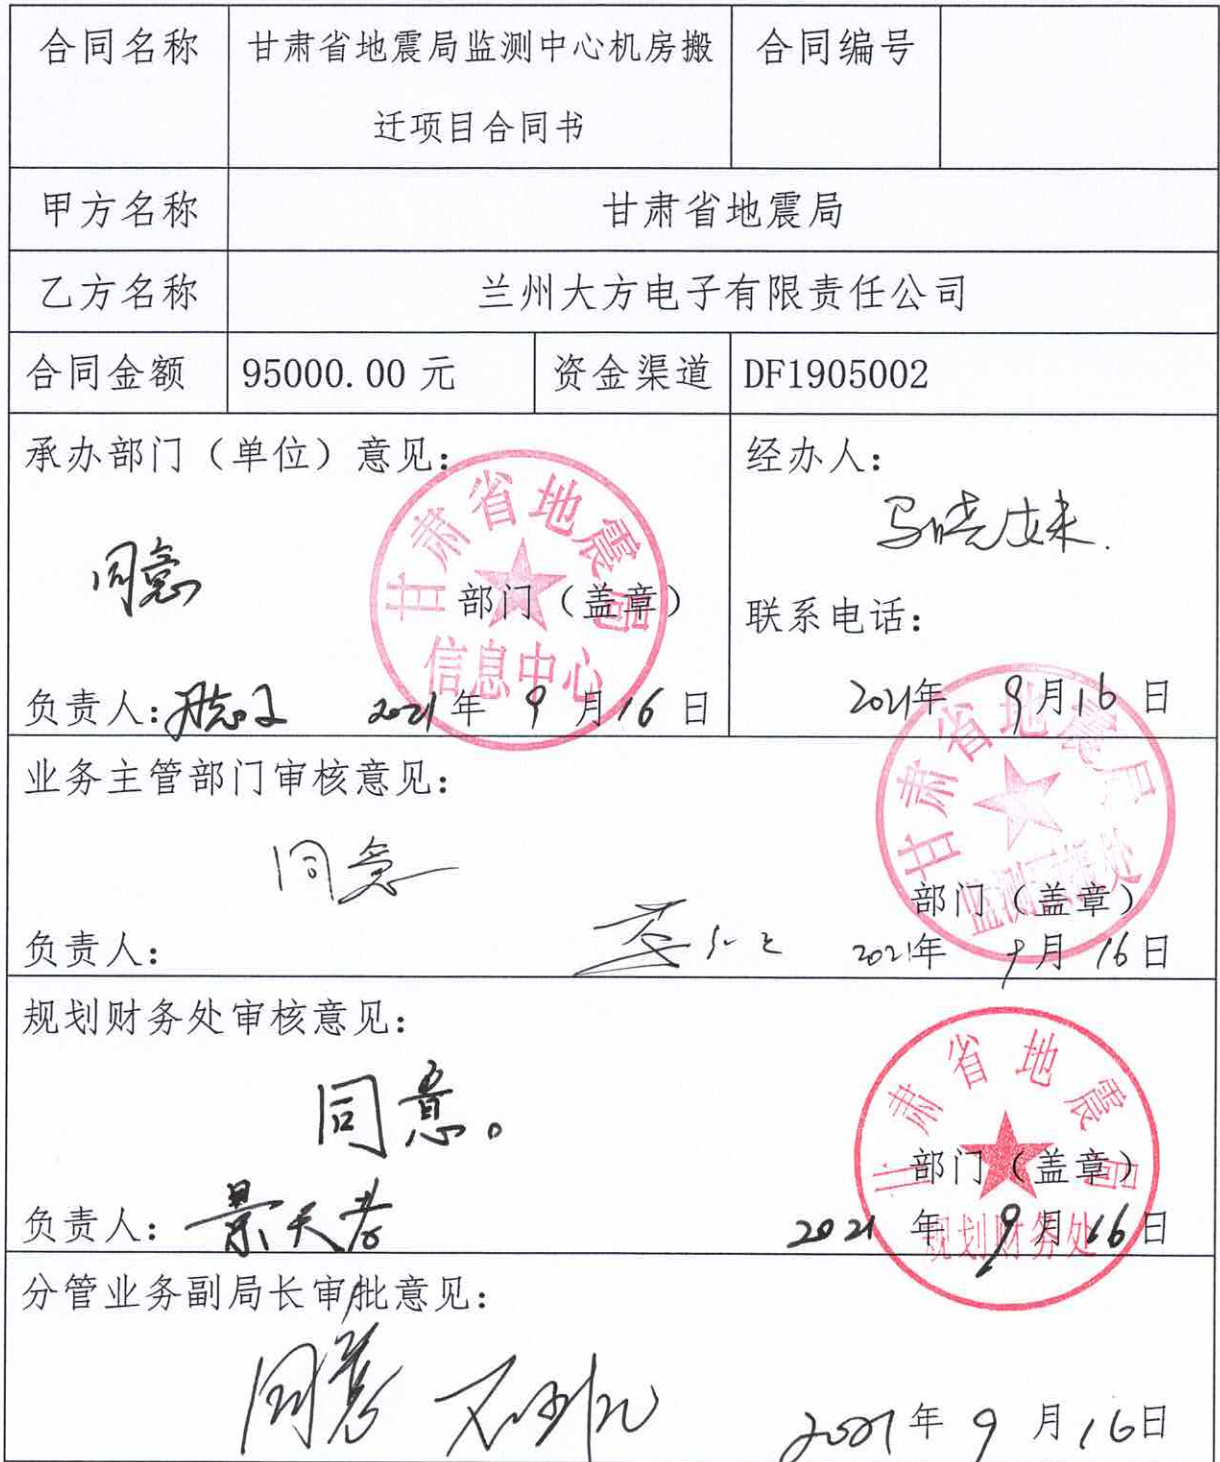 合同名称 甘肃省地震局监测中心机房搬 合同编号
迁项目合同书
甲方名称 甘肃省地震局
乙方名称 兰州大方电子有限责任公司
合同金额 95000.00 元 资金渠道 DF1905002
承办部门（单位）意见： 经办人：
甘肃省地震局
信息中心
同意
部门（盖章）
联系电话：
负责人： 2021年 9 月16 日
2021年 9月16 日
业务主管部门审核意见：
甘肃省地震局
同意
部门（盖章）
负责人： 2021年 9月 16 日
规划财务处审核意见：
甘肃省地震局
规划财务处
同意。
部门（盖章）
负责人：景天孝 2021 年 9 月 16日
分管业务副局长审批意见：
同意
2021年 9 月 16日